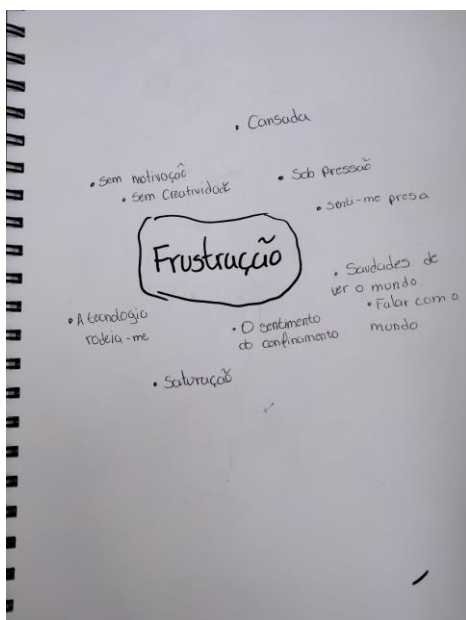 • Cansada
• sem motivação
• sem Creatividade
• Sob Pressão
• senti-me presa
Frustração
• Saudades de
ver o mundo
• Falar com o
mundo
• A tecnologia
rodeia-me
• O sentimento
do confinamento
• Saturação